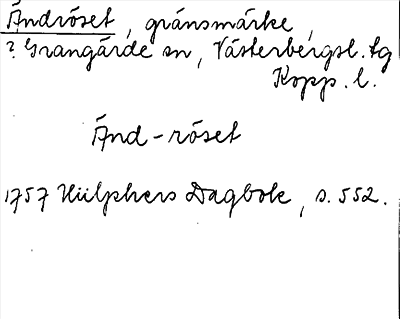 Ändröset, gränsmärke,
? Grangärde sn, Västerbergsl. tg
Kopp. l.
Änd-röset
1757 Hülphers Dagbok, s. 552.